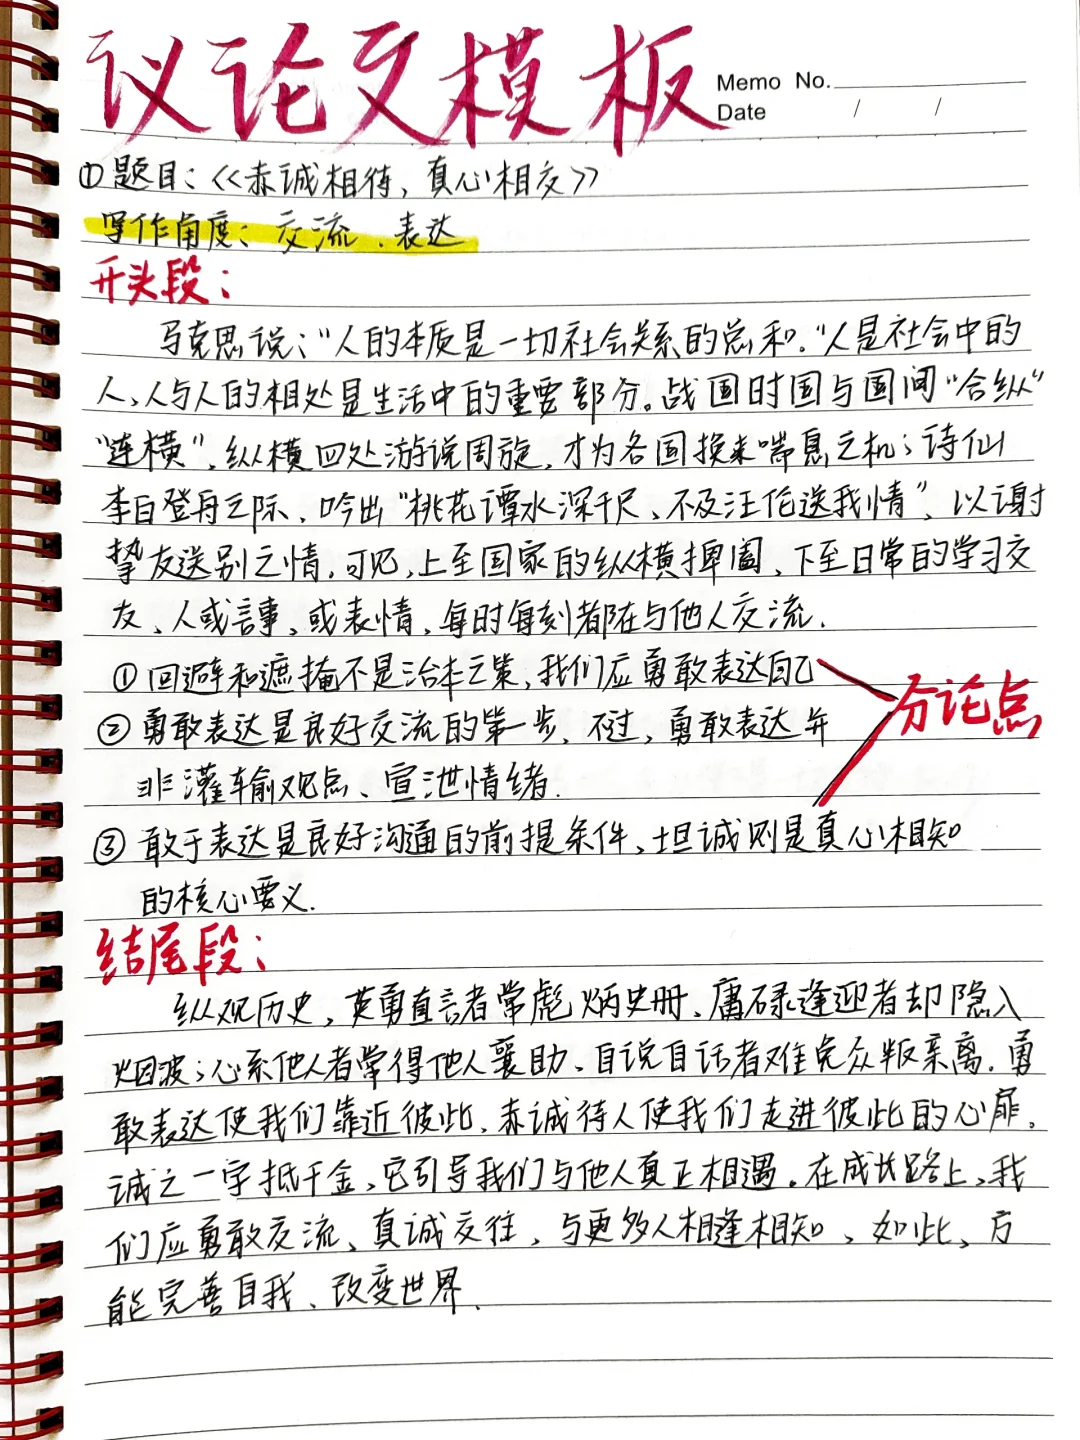 议论文模板
Memo No.
Date / /
①题目:《赤诚相待,真心相交》
写作角度:交流、表达
开头段:
马克思说:“人的本质是一切社会关系的总和。”人是社会中的
人,人与人的相处是生活中的重要部分。战国时国与国间“合纵”
“连横”,纵横四处游说周旋,才为各国换来喘息之机;诗仙
李白登舟之际,吟出“桃花谭水深千尺,不及汪伦送我情”,以谢
挚友送别之情,可见,上至国家的纵横捭阖,下至日常的学习交
友,人或言事,或表情,每时每刻都在与他人交流.
①回避和遮掩不是治本之策,我们应勇敢表达自己
分论点
②勇敢表达是良好交流的第一步,不过,勇敢表达并
非灌输观点、宣泄情绪.
③敢于表达是良好沟通的前提条件,坦诚则是真心相知
的核心要义.
结尾段:
纵观历史,英勇直言者常彪炳史册,庸碌逢迎者却隐入
烟波;心系他人者常得他人襄助,自说自话者难免众叛亲离.勇
敢表达使我们靠近彼此,赤诚待人使我们走进彼此的心扉。
诚之一字抵千金,它引导我们与他人真正相遇。在成长路上,我
们应勇敢交流、真诚交往,与更多人相逢相知,如此,方
能完善自我、改变世界.